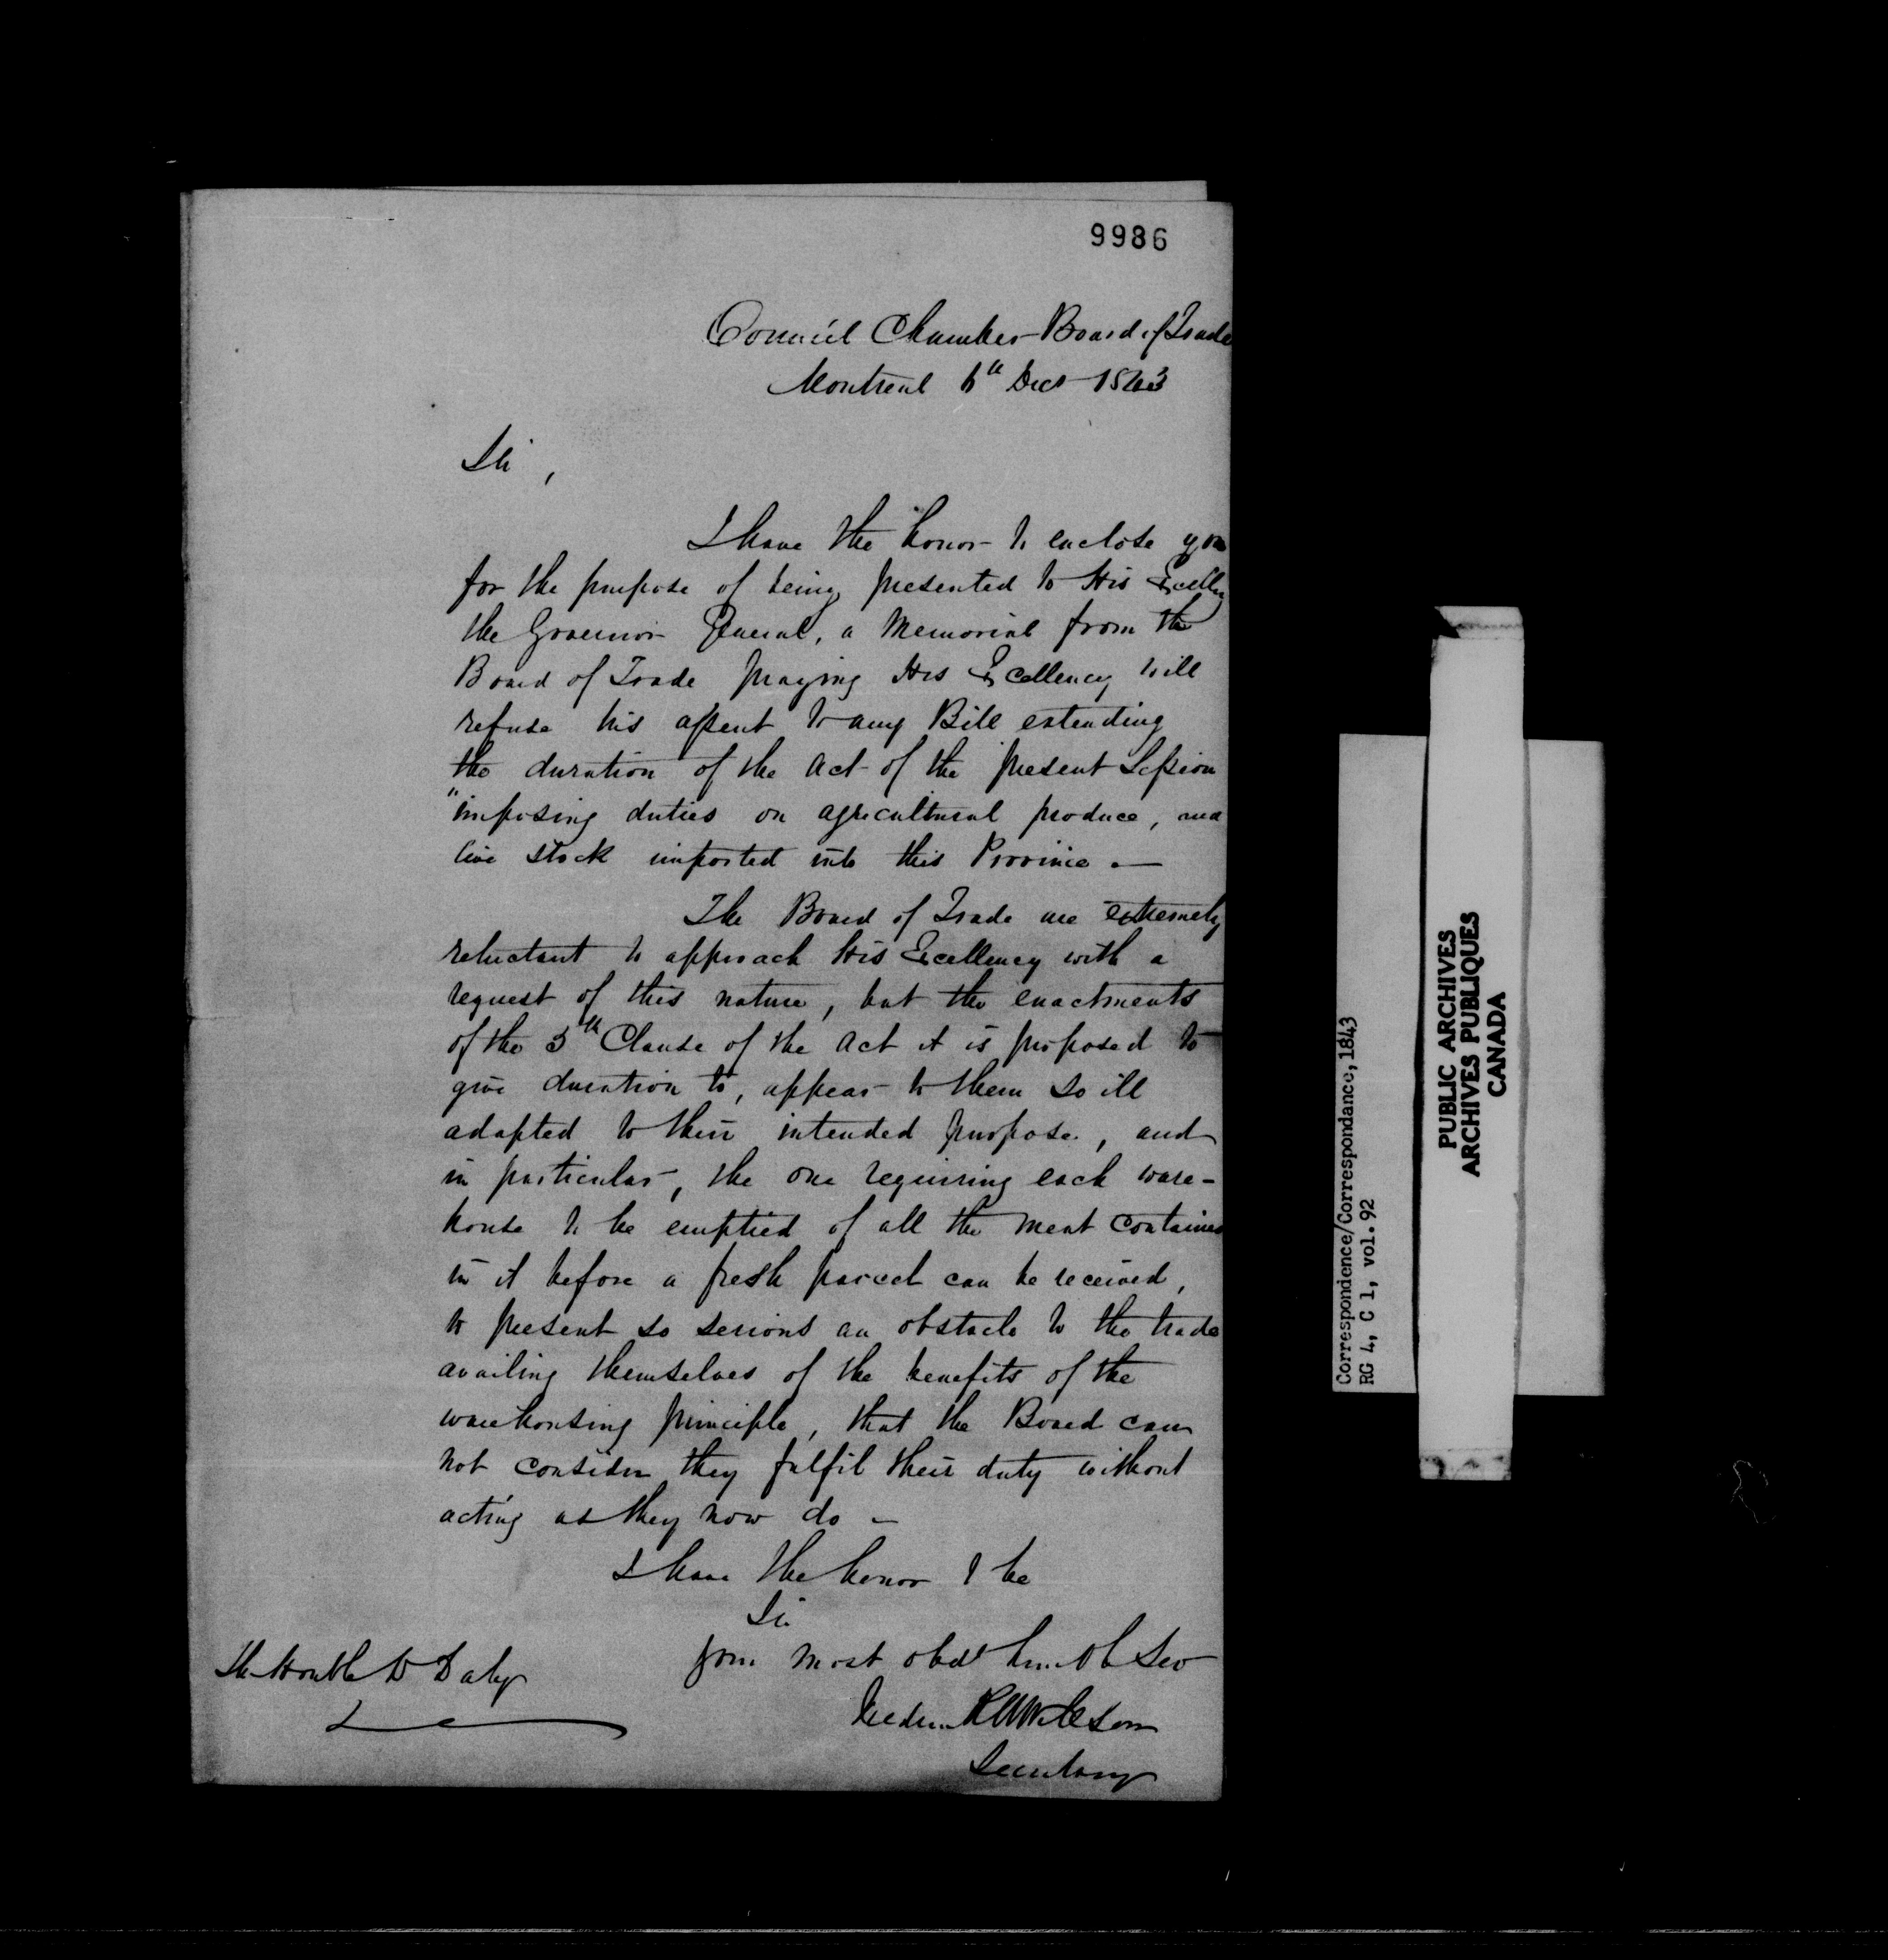 9986
Council Chamber Board of Trade
Montreal 6th Decr 1843
Sir,
I have the honor to enclose you
for the purpose of being presented to His Excellency
the Governor General, a Memorial from the
Board of Trade praying His Excellency will
refuse his assent to any Bill extending
the duration of the Act of the present Session
"imposing duties on agricultural produce, and
live stock imported into this Province. —
The Board of Trade are extremely
reluctant to approach His Excellency with a
request of this nature, but the enactments
of the 5th Clause of the Act it is proposed to
give duration to, appear to them so ill
adapted to their intended purpose, and
in particular, the one requiring each ware-
house to be emptied of all the meat contained
in it before a fresh parcel can be received,
to present so serious an obstacle to the trade
availing themselves of the benefits of the
warehousing principle, that the Board can
not consider they fulfil their duty without
acting as they now do —
I have the honor to be
Sir
your most obdt humbl Ser
The Honble D Daly
Willson
Secretary
Correspondence/Correspondance, 1843
RG 4, C 1, vol. 92
PUBLIC ARCHIVES
ARCHIVES PUBLIQUES
CANADA